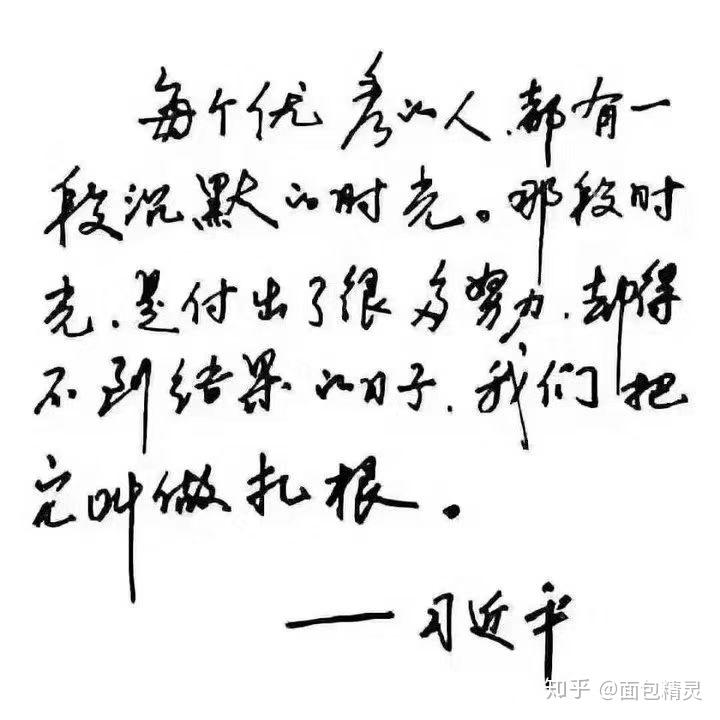 每个优秀的人,都有一
段沉默的时光。那段时
光,是付出了很多努力,却得
不到结果的日子,我们把
它叫做扎根。
——习近平
知乎 @面包精灵